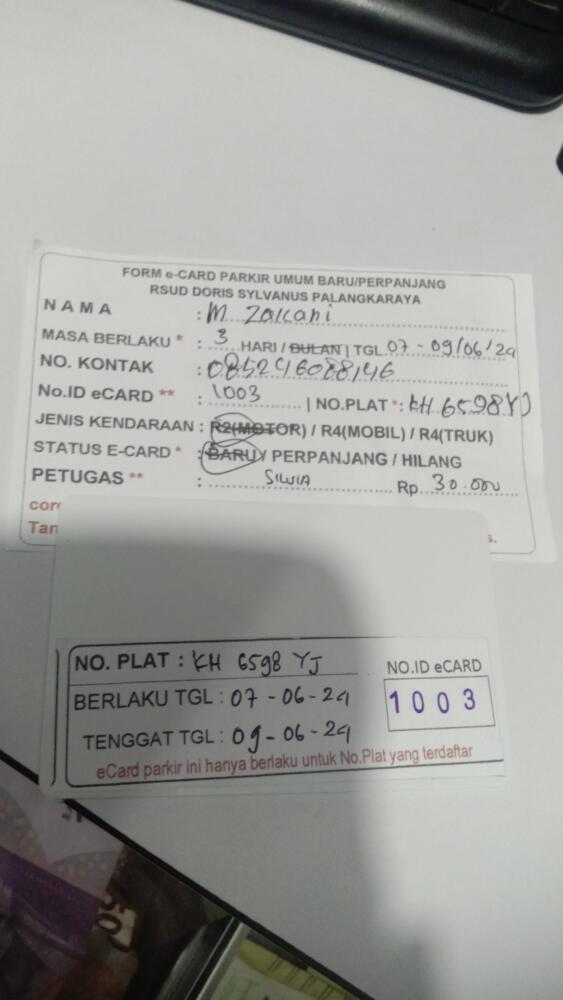 FORM e-CARD PARKIR UMUM BARU/PERPANJANG
RSUD DORIS SYLVANUS PALANGKARAYA
NAMA : M. Zakani
MASA BERLAKU * : 3 HARI / BULAN | TGL 07 - 09/06/24
NO. KONTAK : 085246088146
No.ID eCARD ** : 1003 | NO.PLAT * : KH 6598 YJ
JENIS KENDARAAN : R2(MOTOR) / R4(MOBIL) / R4(TRUK)
STATUS E-CARD * : BARU / PERPANJANG / HILANG
PETUGAS ** : SILVIA Rp. 30.000
NO. PLAT : KH 6598 YJ
NO.ID eCARD
BERLAKU TGL : 07-06-24
1003
TENGGAT TGL : 09-06-24
eCard parkir ini hanya berlaku untuk No.Plat yang terdaftar